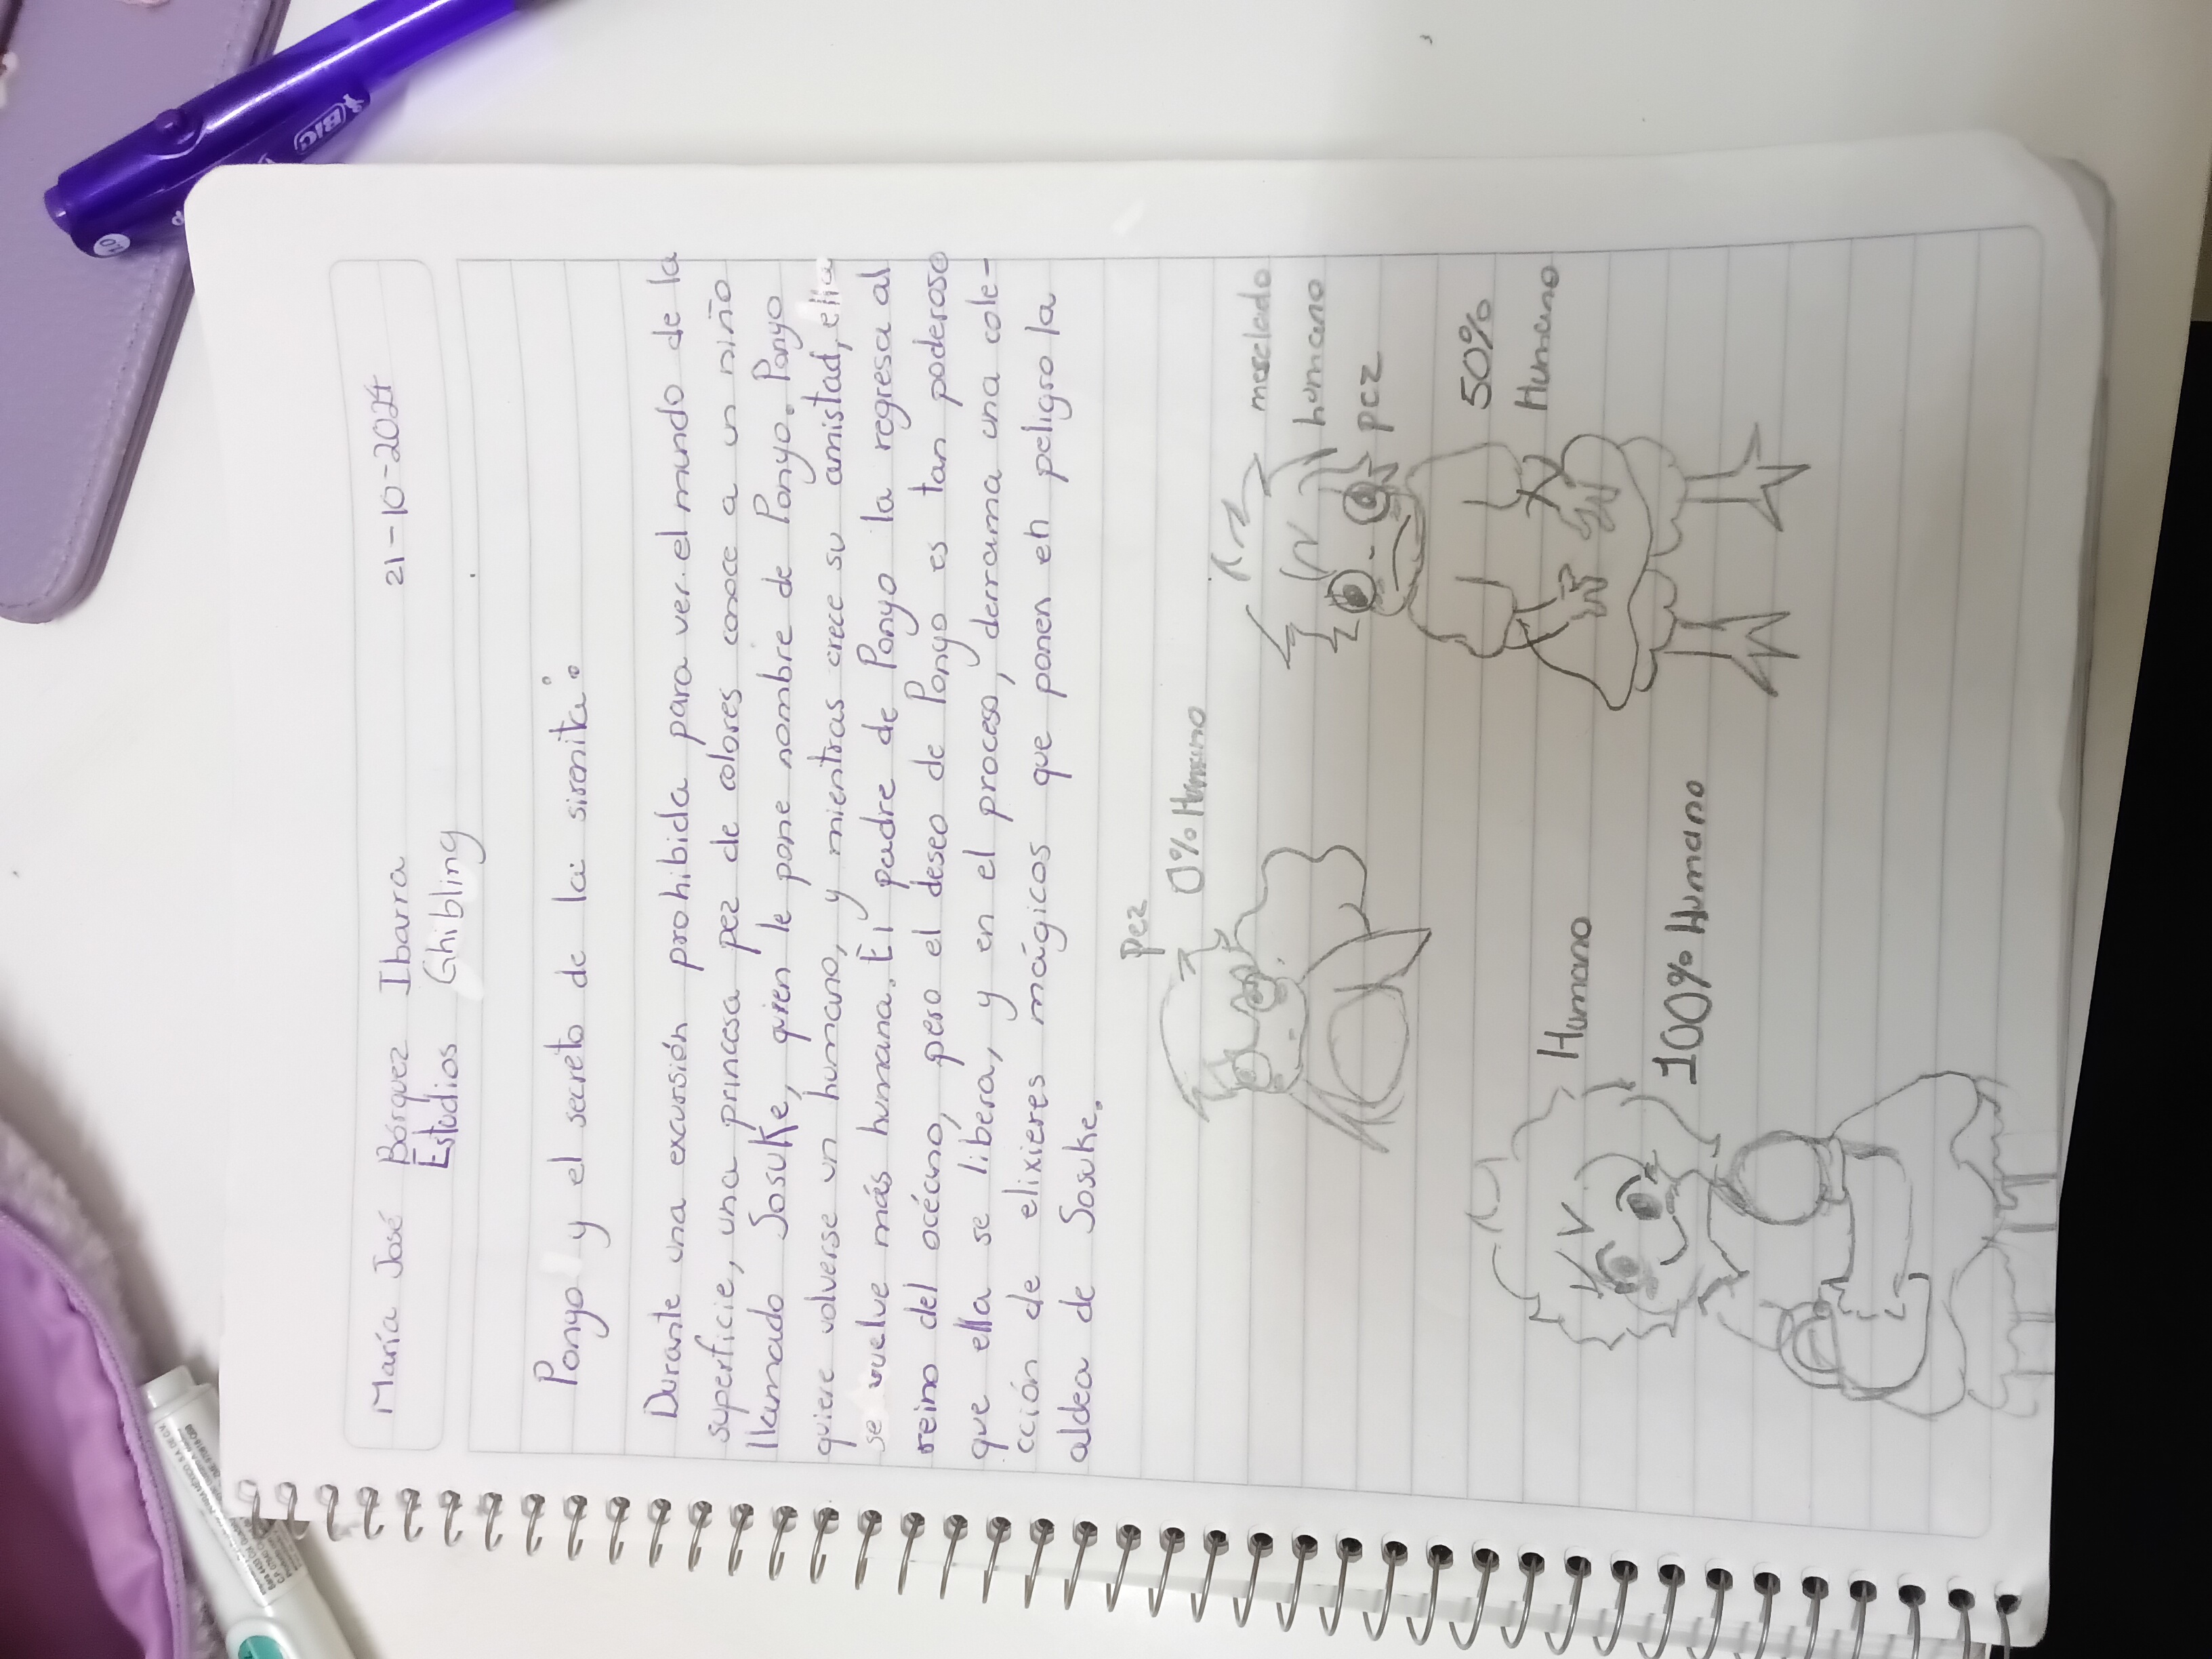 María José Bórquez Ibarra 21-10-2024
Estudios Ghibling
Ponyo y el secreto de la sirenita:
Durante una excursión prohibida para ver el mundo de la
superficie, una princesa pez de colores conoce a un niño
llamado Sosuke, quien le pone nombre de Ponyo. Ponyo
quiere volverse un humano, y mientras crece su amistad, ella
se vuelve más humana. El padre de Ponyo la regresa al
reino del océano, pero el deseo de Ponyo es tan poderoso
que ella se libera, y en el proceso, derrama una cole-
cción de elixieres mágicos que ponen en peligro la
aldea de Sosuke.
Pez
0% Humano
mesclado
humano
pez
50%
Humano
Humano
100% Humano
BIC